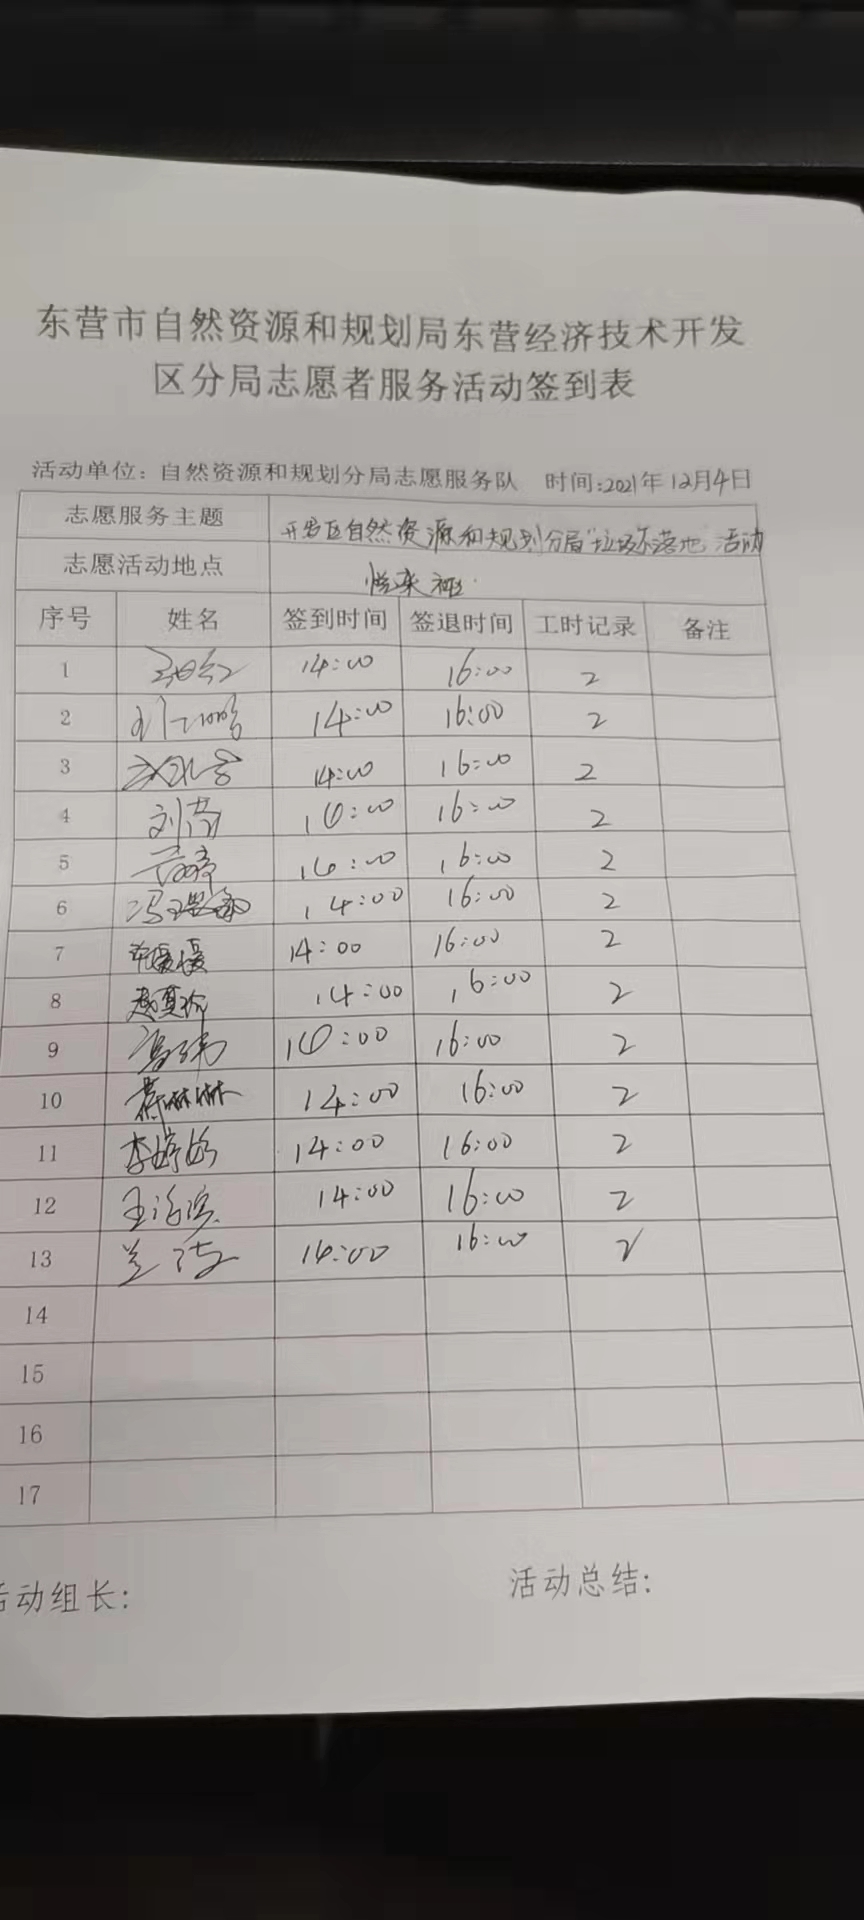 东营市自然资源和规划局东营经济技术开发
区分局志愿者服务活动签到表
活动单位：自然资源和规划分局志愿服务队 时间:2021年12月4日
志愿服务主题 开发区自然资源和规划分局"垃圾不落地"活动
志愿活动地点 悦来
序号 姓名 签到时间 签退时间 工时记录 备注
1 14:00 16:00 2
2 14:00 16:00 2
3 14:00 16:00 2
4 刘芳 14:00 16:00 2
5 14:00 16:00 2
6 14:00 16:00 2
7 14:00 16:00 2
8 14:00 16:00 2
9 14:00 16:00 2
10 14:00 16:00 2
11 李婷婷 14:00 16:00 2
12 14:00 16:00 2
13 14:00 16:00 2
14
15
16
17
活动组长: 活动总结: